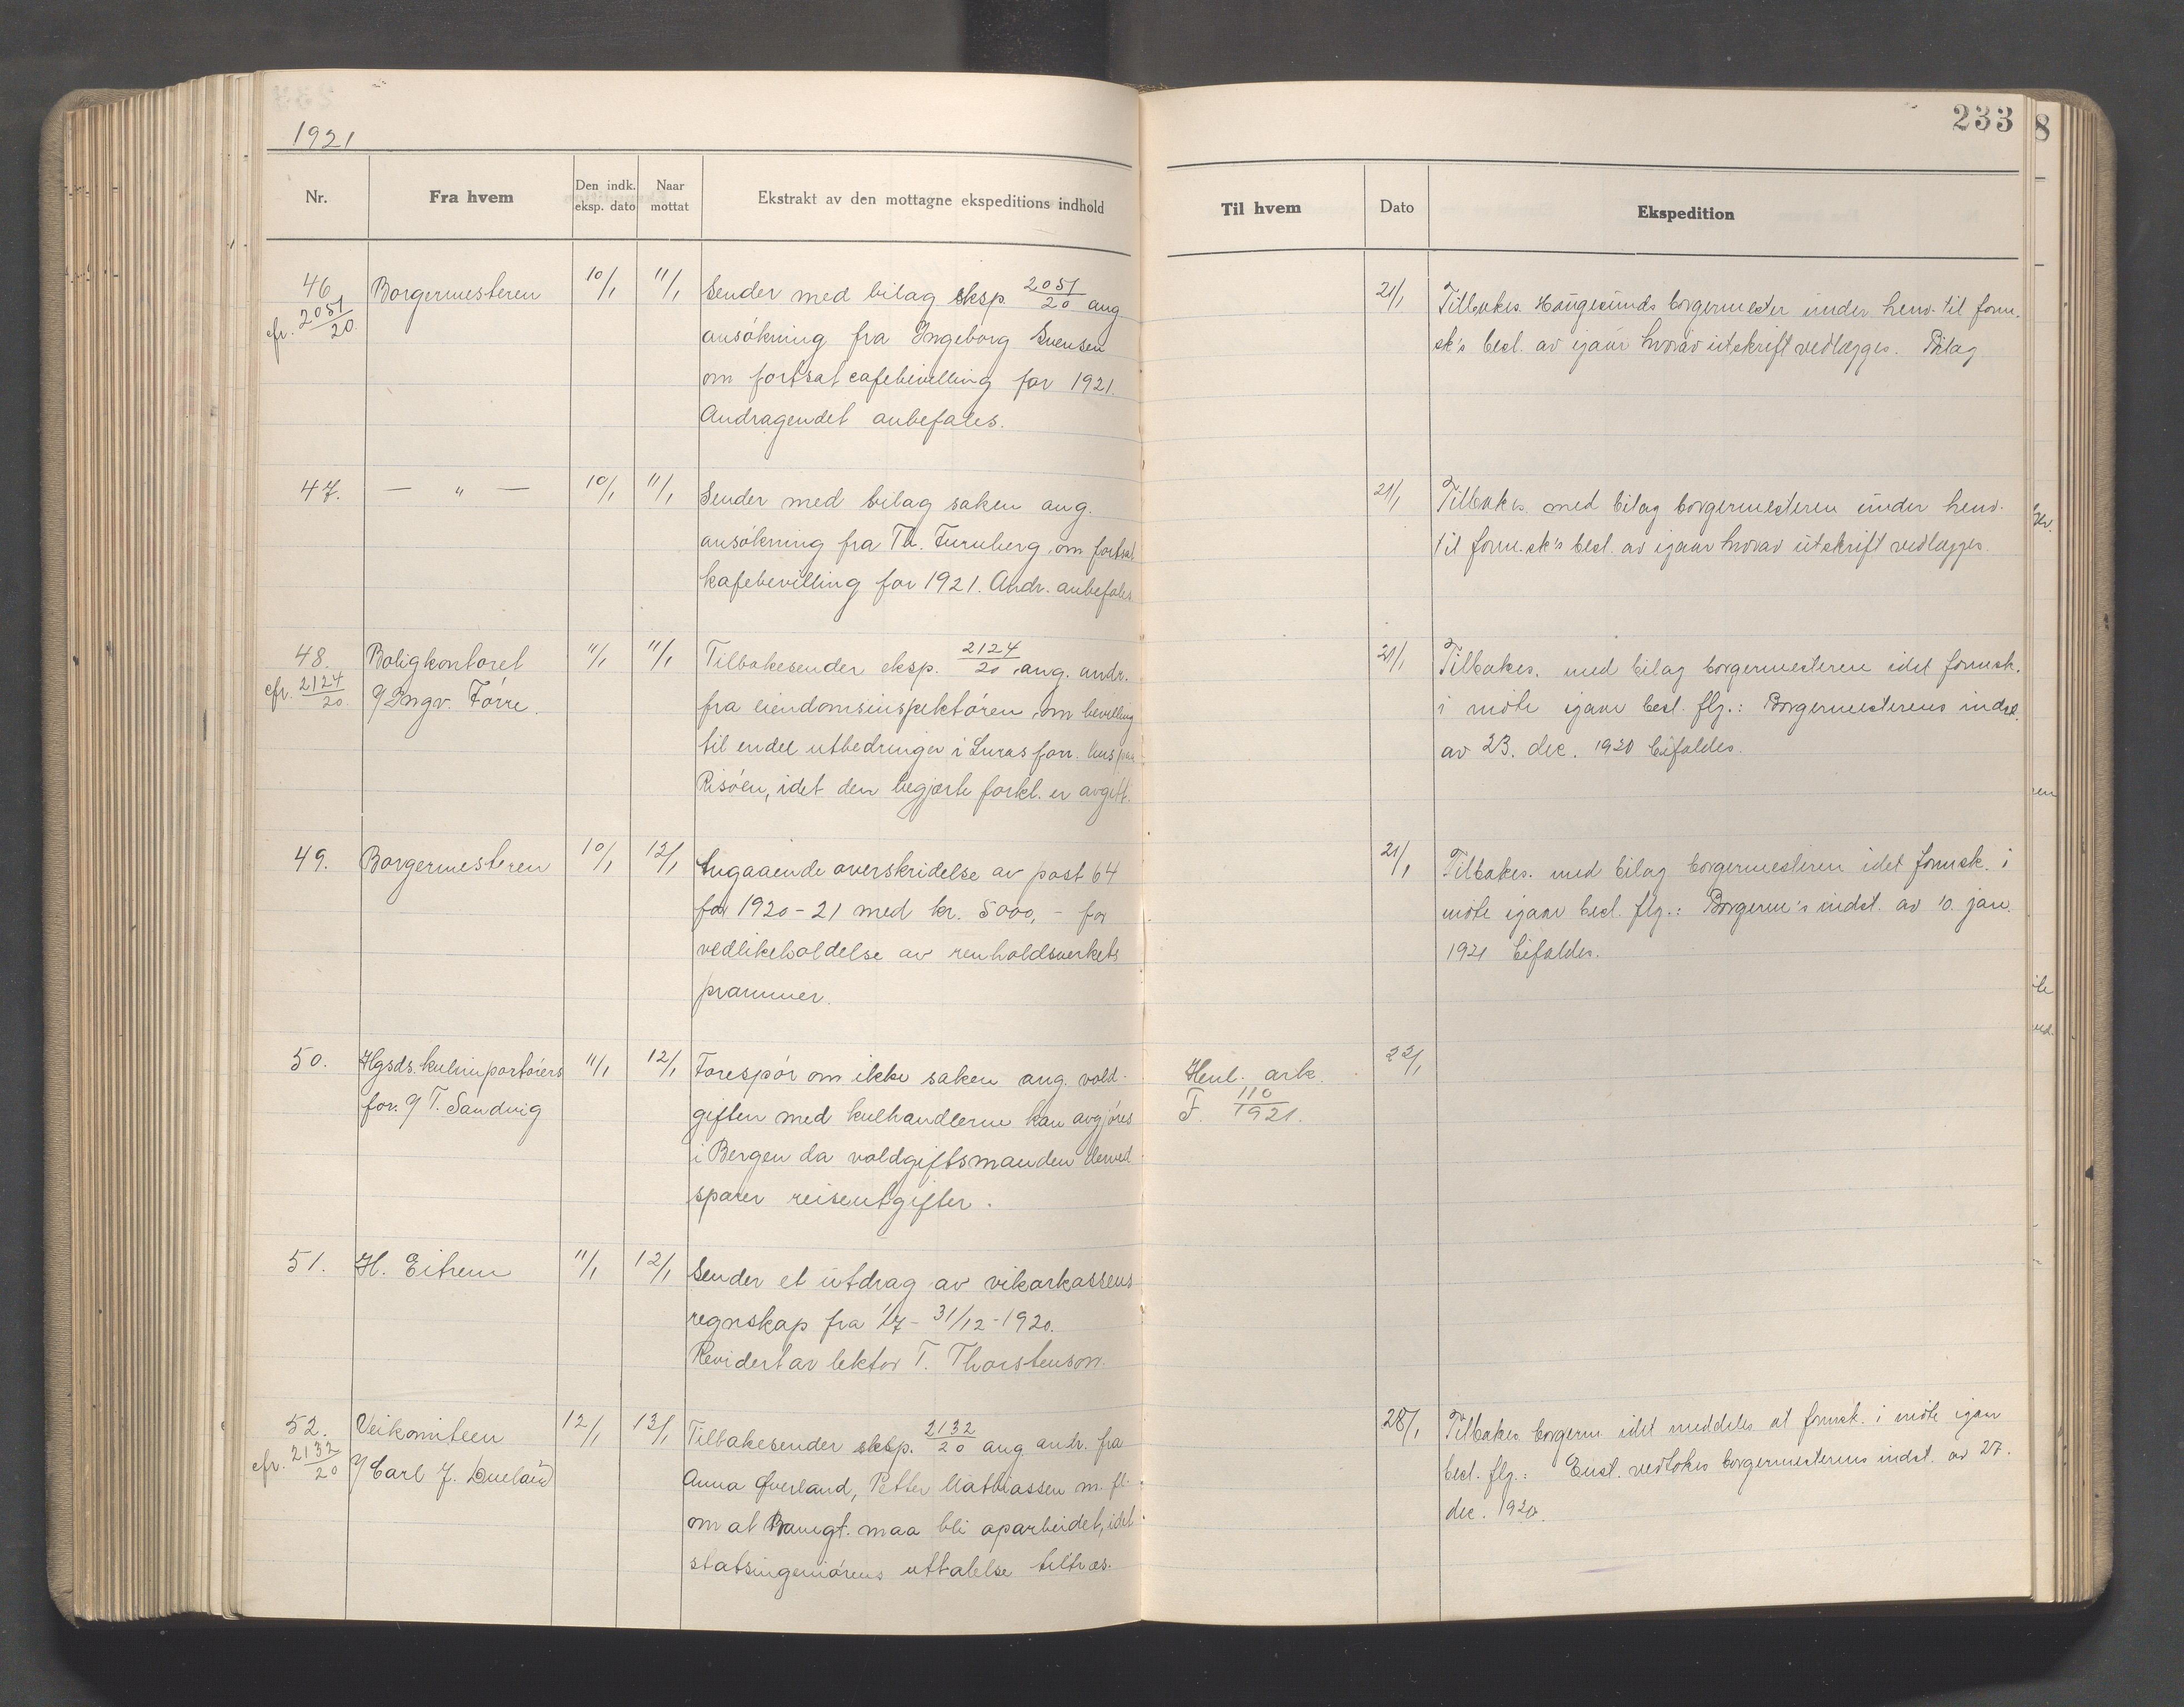 1921
233
Nr.
Fra hvem
Den indk. eksp. dato
Naar mottat
Ekstrakt av den mottagne ekspeditions indhold
Til hvem
Dato
Ekspedition
46
cfr. 2051/20.
Borgermesteren
10/1
11/1
Sender med bilag eksp. 2051/20 ang
ansökning fra Ingeborg Svensen
om fortsat cafebevilling for 1921.
Andragendet anbefales.
21/1
Tilbakes. Haugesunds borgermester under henv. til form.
sk's besl. av igaar hvorav utskrift vedlægges. Bilag
47.
— " —
10/1
11/1
Sender med bilag saken ang.
ansökning fra Th. Furuberg om fortsat
kafebevilling for 1921. Andr. anbefales
21/1
Tilbakes. med bilag borgermesteren under henv.
til form.sk's besl. av igaar hvorav utskrift vedlægges.
48.
cfr. 2124/20.
Boligkontoret
v/ Ingv. Förre.
11/1
11/1
Tilbakesender eksp. 2124/20 ang. andr.
fra eiendomsinspektören om bevilling
til endel utbedringer i Luras forr. hus paa
Risöen, idet den begjærte forkl. er avgitt.
21/1
Tilbakes. med bilag borgermesteren idet formsk.
i möte igaar besl. flg.: Borgermesterens indst.
av 23. dec. 1920 bifaldes.
49.
Borgermesteren
10/1
12/1
Angaaende overskridelse av post 64
for 1920-21 med kr. 5000,- for
vedlikeholdelse av renholdsverkets
prammer.
21/1
Tilbakes. med bilag borgermesteren idet formsk. i
möte igaar besl. flg.: Borgerm's indst. av 10. jan.
1921 bifaldes.
50.
Hgsds. kulimportörers
for. v/ T. Sandvig
11/1
12/1
Forespör om ikke saken ang. vold-
giften med kulhandlerne kan avgjöres
i Bergen da voldgiftsmanden derved
sparer reiseutgifter.
Henl. ark.
F. 110/1921.
22/1
51.
H. Eitrem
11/1
12/1
Sender et utdrag av vikarkassens
regnskap fra 1/7- 31/12-1920.
Revidert av lektor T. Thorstenson.
52.
cfr. 2132/20
Veikomiteen
v/ Carl J.
12/1
13/1
Tilbakesender eksp. 2132/20 ang andr. fra
Anna Qverland, Petter Mathiassen m. fl.
om at maa bli oparbeidet, idet
statsingeniörens uttalelse tiltræs.
28/1
Tilbakes. borgerm idet meddeles at formsk. i möte igaar
besl. flg.: Enst. vedtokes borgermesterens indst. av 27.
dec. 1920.